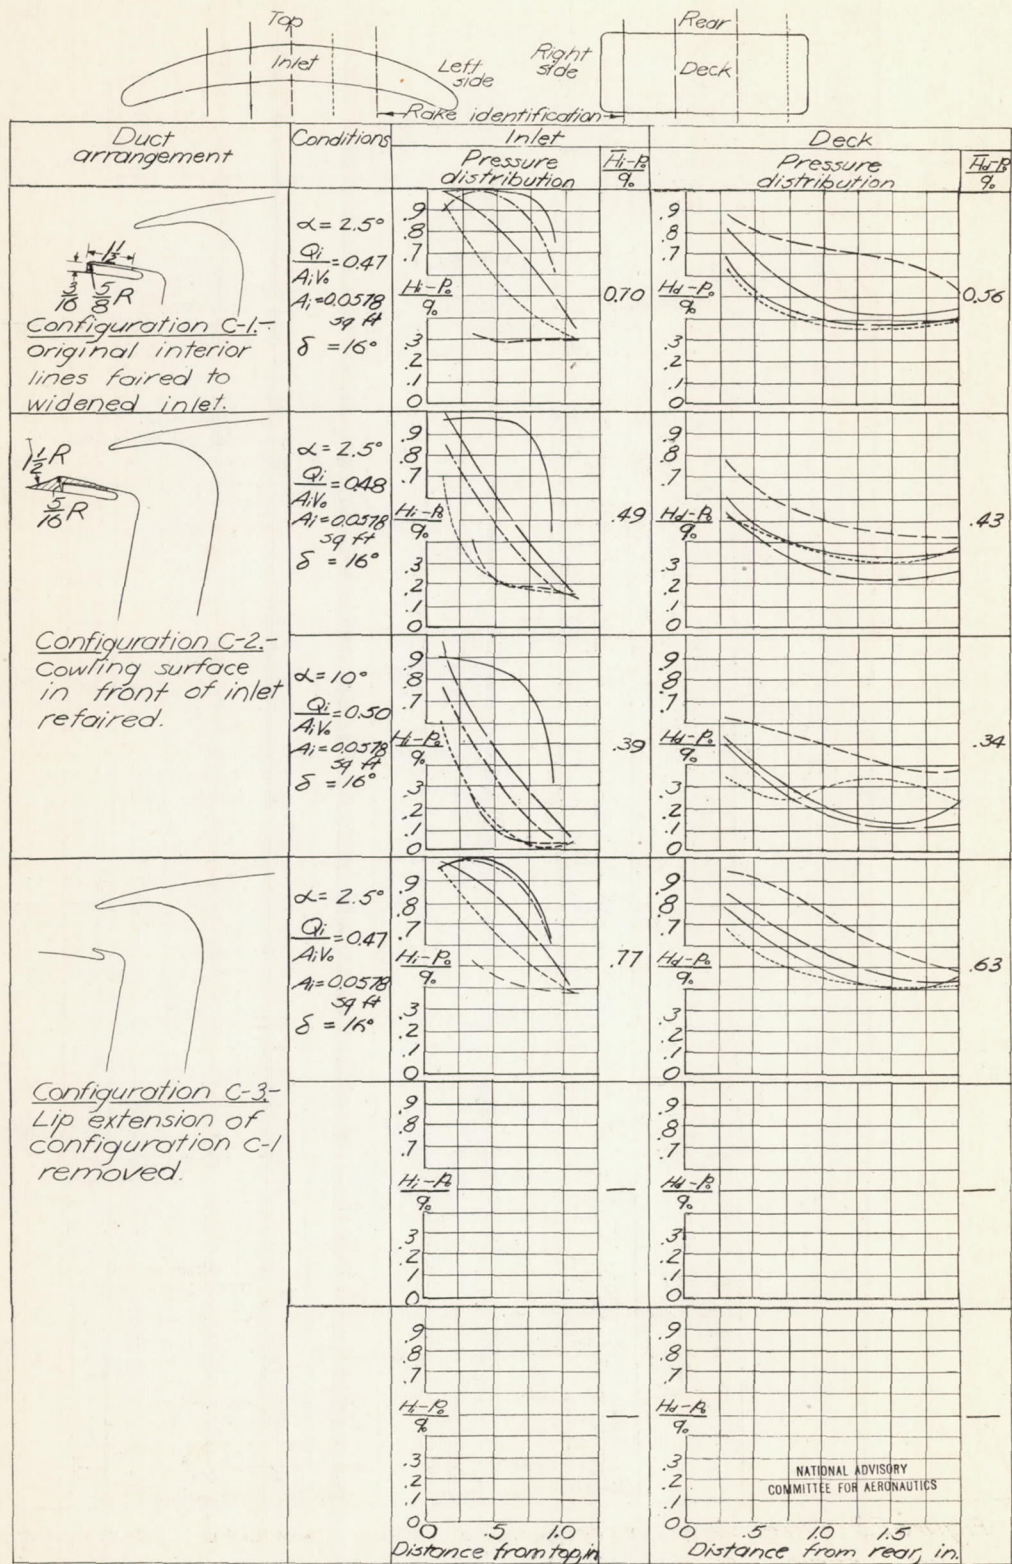 Top
Inlet
Left side
Right side
Rear
Deck
Rake identification
Duct arrangement
Conditions
Inlet
Deck
Pressure distribution
H̄i-P₀/q₀
Pressure distribution
H̄d-P₀/q₀
1½
3/16
5/8 R
Configuration C-1.-
original interior
lines faired to
widened inlet.
α = 2.5°
Qi/AiV₀ = 0.47
Ai = 0.0578
sq ft
δ = 16°
.9
.8
.7
Hi-P₀/q₀
.3
.2
.1
0
0.70
.9
.8
.7
Hd-P₀/q₀
.3
.2
.1
0
0.56
1½ R
5/16 R
Configuration C-2.-
Cowling surface
in front of inlet
refaired.
α = 2.5°
Qi/AiV₀ = 0.48
Ai = 0.0578
sq ft
δ = 16°
.9
.8
.7
Hi-P₀/q₀
.3
.2
.1
0
.49
.9
.8
.7
Hd-P₀/q₀
.3
.2
.1
0
.43
α = 10°
Qi/AiV₀ = 0.50
Ai = 0.0578
sq ft
δ = 16°
.9
.8
.7
Hi-P₀/q₀
.3
.2
.1
0
.39
.9
.8
.7
Hd-P₀/q₀
.3
.2
.1
0
.34
Configuration C-3.-
Lip extension of
configuration C-1
removed.
α = 2.5°
Qi/AiV₀ = 0.47
Ai = 0.0578
sq ft
δ = 16°
.9
.8
.7
Hi-P₀/q₀
.3
.2
.1
0
.77
.9
.8
.7
Hd-P₀/q₀
.3
.2
.1
0
.63
.9
.8
.7
Hi-P₀/q₀
.3
.2
.1
0
—
.9
.8
.7
Hd-P₀/q₀
.3
.2
.1
0
—
.9
.8
.7
Hi-P₀/q₀
.3
.2
.1
0
—
.9
.8
.7
Hd-P₀/q₀
.3
.2
.1
0
—
NATIONAL ADVISORY
COMMITTEE FOR AERONAUTICS
0 .5 1.0
Distance from top, in
0 .5 1.0 1.5
Distance from rear, in.